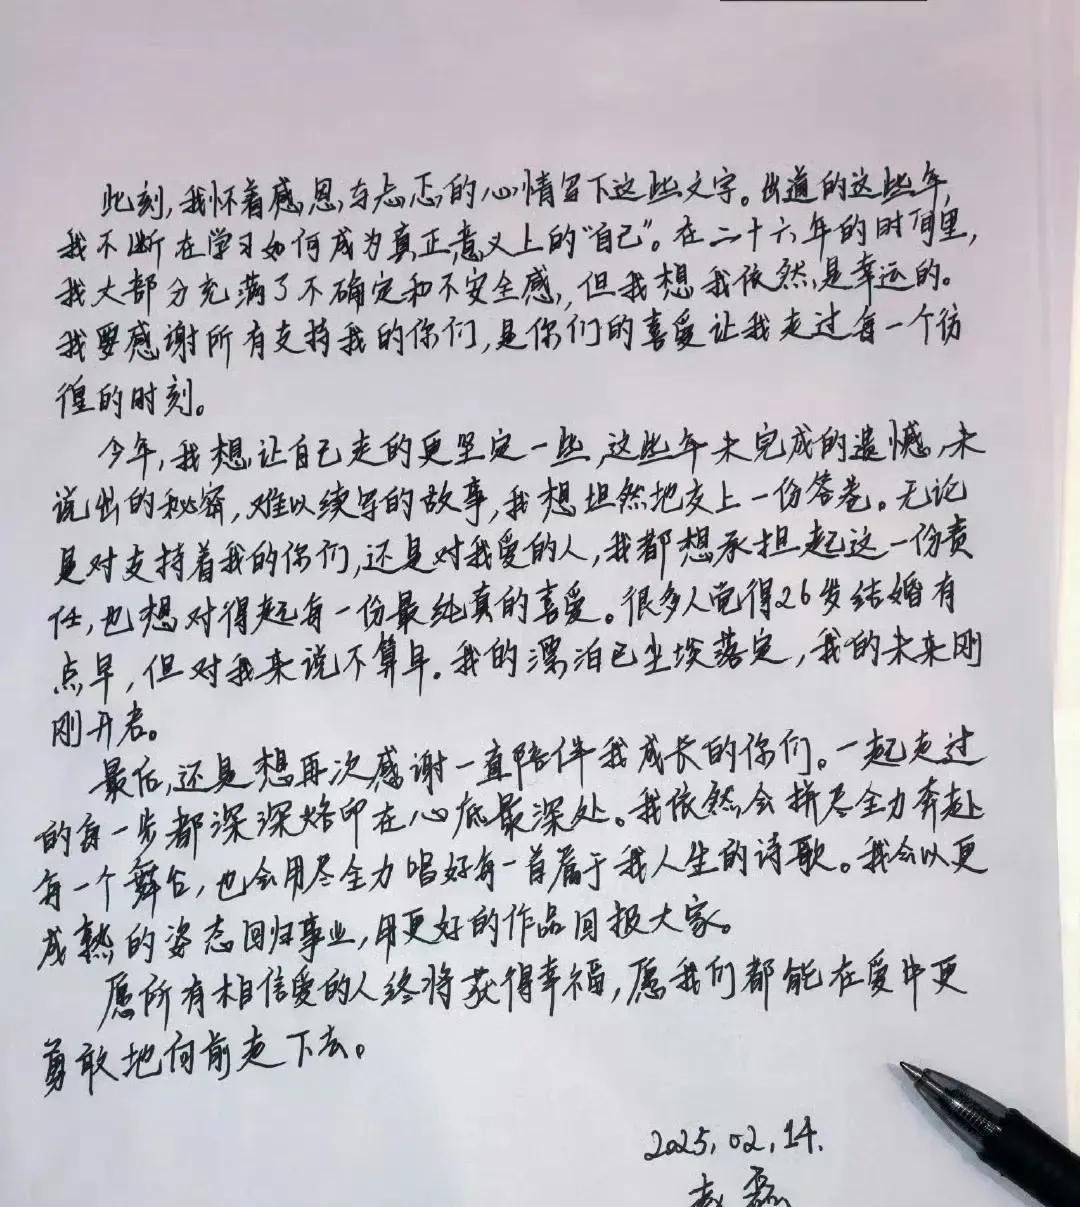 此刻,我怀着感恩与忐忑的心情留下这些文字。出道的这些年,
我不断在学习如何成为真正意义上的“自己”。在二十六年的时间里,
我大部分充满了不确定和不安全感,但我想我依然是幸运的。
我要感谢所有支持我的你们,是你们的喜爱让我走过每一个彷
徨的时刻。
今年,我想让自己走的更坚定一些,这些年未完成的遗憾,未
说出的秘密,难以续写的故事,我想坦然地交上一份答卷。无论
是对支持着我的你们,还是对我爱的人,我都想承担起这一份责
任,也想对得起每一份最纯真的喜爱。很多人觉得26岁结婚有
点早,但对我来说不算早。我的漂泊已尘埃落定,我的未来刚
刚开启。
最后,还是想再次感谢一直陪伴我成长的你们。一起走过
的每一步都深深烙印在心底最深处。我依然会拼尽全力奔赴
每一个舞台,也会用尽全力唱好每一首属于我人生的诗歌。我会以更
成熟的姿态回归事业,用更好的作品回报大家。
愿所有相信爱的人终将获得幸福,愿我们都能在爱中更
勇敢地向前走下去。
2025.02.14.
赵磊